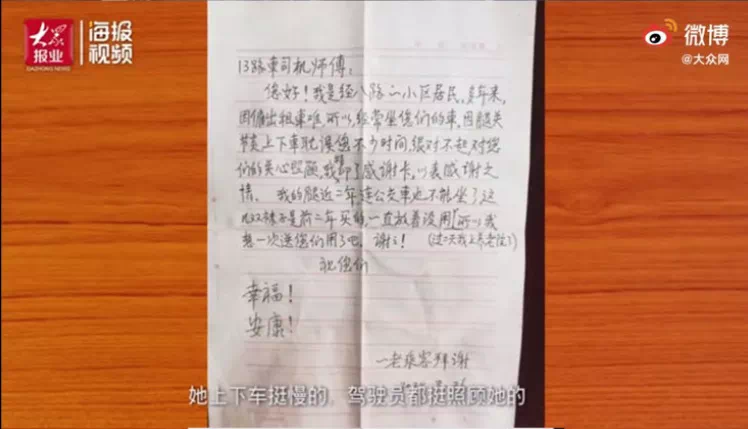 大众
报业
DAZHONG NEWS
海报
视频
微博
@大众网
13路車司机师傅：
您好！我是经八路一小区居民，多年来，
因僱出租車难，所以，经常坐您们的車，因腿关
节炎上下車耽误您不少时间，很对不起，对您
们的关心照顾，我印了感谢卡，以表感谢之
情。我的腿近二年连公交車也不能坐了这
几双袜子是前二年买的，一直放着没用，所以我
想一次送您们用了吧，谢谢！（过二天我上养老院了）
祝您们
幸福！
安康！
一老乘客拜谢
她上下车挺慢的，驾驶员都挺照顾她的